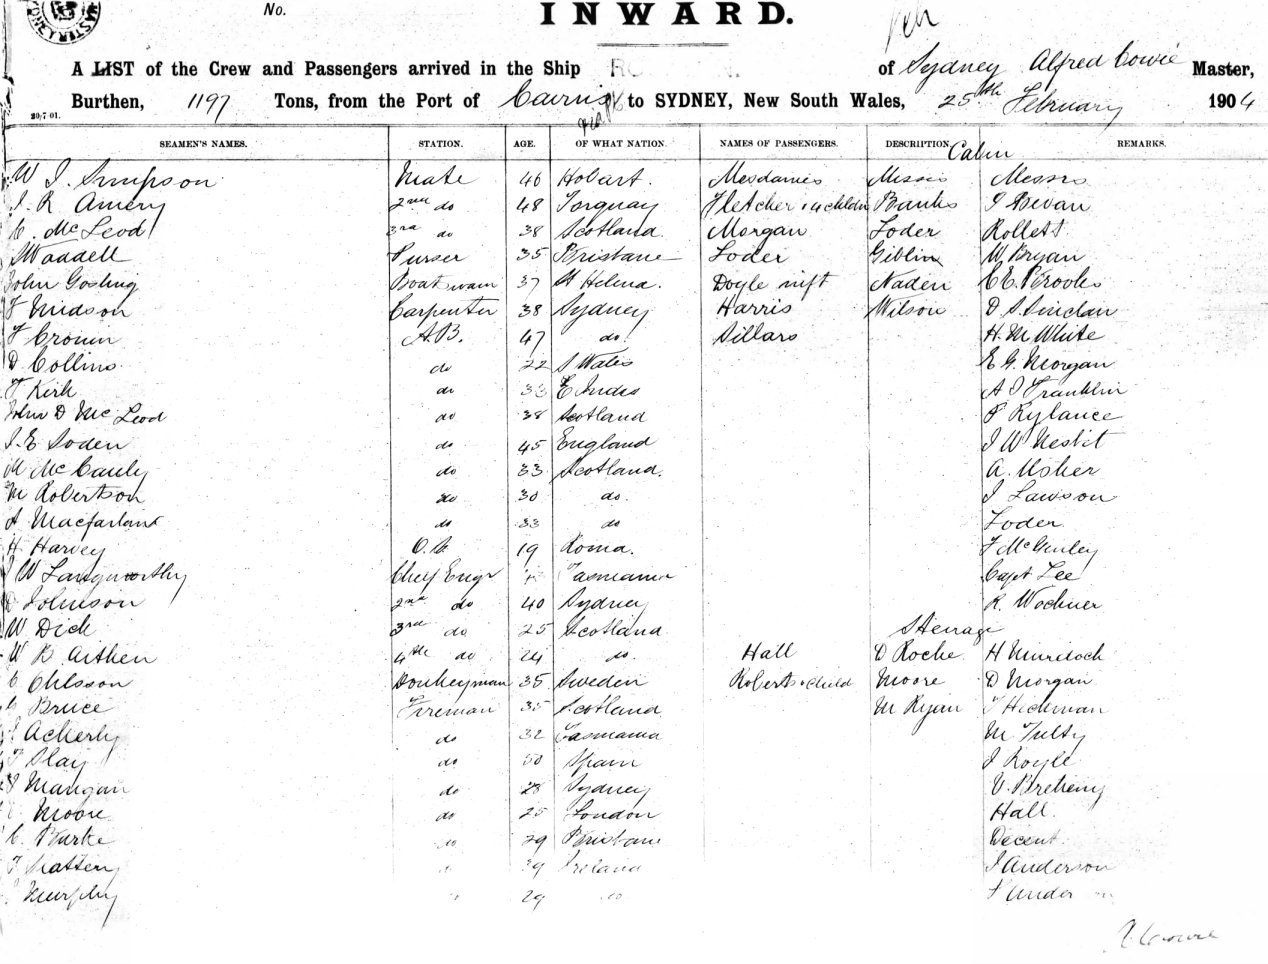 No.
INWARD.
A LIST of the Crew and Passengers arrived in the Ship of Sydney Alfred Cowie Master,
Burthen, 1197 Tons, from the Port of Cairns to SYDNEY, New South Wales, 25th February 1904
20/7 01.
SEAMEN'S NAMES. STATION. AGE. OF WHAT NATION. NAMES OF PASSENGERS. DESCRIPTION. Cabin REMARKS.
W J. Simpson Mate 46 Hobart. Mesdames Misses Messrs
J. R Amery 2nd do 48 Torquay Fletcher Banks J Bevan
C. McLeod 3rd do 38 Scotland Morgan Loder Rollett
Waddell Purser 35 Brisbane Loder Giblin W. Bryan
John Gosling Boatswain 37 St Helena. Doyle Naden C E. Brooks
Carpenter 38 Sydney Harris Wilson D S. Sinclair
T Cronin A.B. 47 do Sillars H. M White
D Collins do 22 S Wales E G. Morgan
T Kirk do 33 E Indes A J Franklin
John D McLeod do 38 Scotland F Rylance
J. E Soden do 45 England J W Nesbit
M McCauly do 33 Scotland. A. Usher
M Robertson do 30 do. J Lawson
A Macfarlane do 33 do Loder
H Harvey O.S 19 Roma. T McGinley
J W Langworthy Chief Engr Tasmania Capt Lee
Johnson 2nd do 40 Sydney R. Wochner
W Dick 3rd do 25 Scotland Steerage
W B Aitken 4th do 24 do. Hall D Roche H Murdoch
C Ohlsson Donkeyman 35 Sweden Roberts & Child Moore D Morgan
Bruce Fireman 35 Scotland M Ryan T Hickman
Ackerly do 32 Tasmania M Tulty
Slay do 50 Spain J Royle
Mangan do 28 Sydney V. Breheny
Moore do 25 London Hall.
C. Burke do 29 Brisbane Decent
T Slattery 39 Ireland J Anderson
Murphy 29 do
A. Cowie